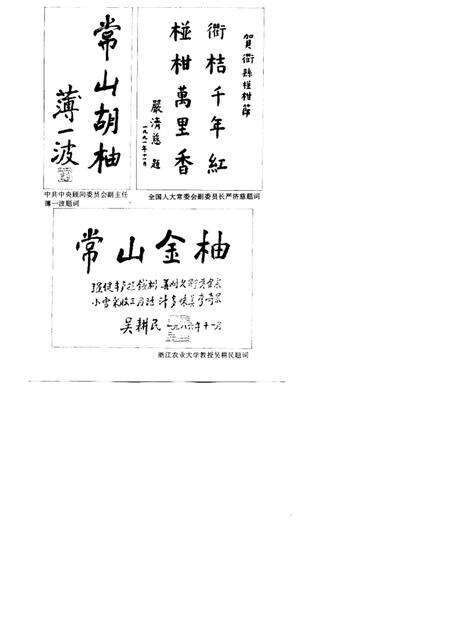 常山胡柚
薄一波
中共中央顾问委员会副主任
薄一波题词
贺衢县椪柑节
衢桔千年紅
椪柑萬里香
嚴濟慈 题
一九九一年十一月
全国人大常委会副委员长严济慈题词
常山金柚
吴耕民 一九八六年十一月
浙江农业大学教授吴耕民题词